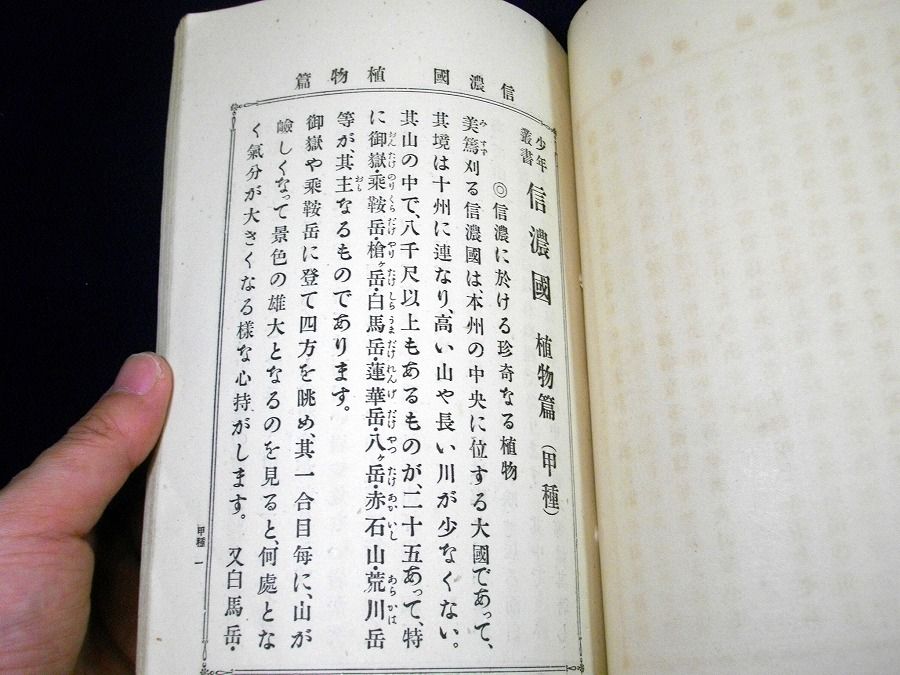 信濃國 植物篇
少年叢書 信濃國 植物篇 (甲種)
◎信濃に於ける珍奇なる植物
美篶刈る信濃國は本州の中央に位する大國であって、
其境は十州に連なり、高い山や長い川が少なくない。
其山の中で、八千尺以上もあるものが、二十五あって、特
に御嶽・乘鞍岳・槍ヶ岳・白馬岳・蓮華岳・八ヶ岳・赤石山・荒川岳
等が其主なるものであります。
御嶽や乘鞍岳に登て四方を眺め、其一合目每に、山が
嶮しくなって景色の雄大となるのを見ると、何處とな
く氣分が大きくなる樣な心持がします。又白馬岳・
甲種 一